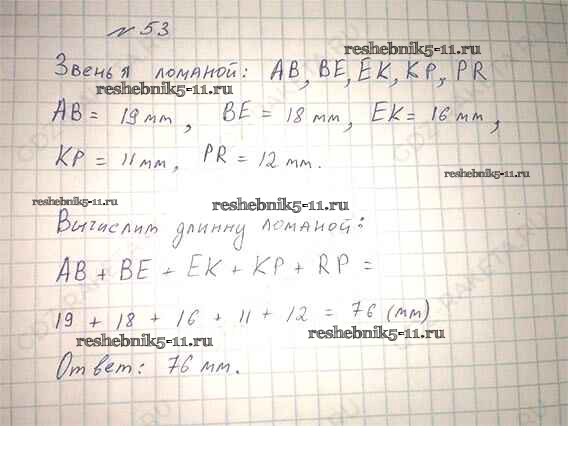 № 53
reshebnik5-11.ru
Звенья ломаной: AB, BE, EK, KP, PR
reshebnik5-11.ru
AB = 19 мм, BE = 18 мм, EK = 16 мм,
KP = 11 мм, PR = 12 мм.
reshebnik5-11.ru
reshebnik5-11.ru
reshebnik5-11.ru
Вычислим длинну ломаной:
AB + BE + EK + KP + RP =
19 + 18 + 16 + 11 + 12 = 76 (мм)
reshebnik5-11.ru
reshebnik5-11.ru
Ответ: 76 мм.